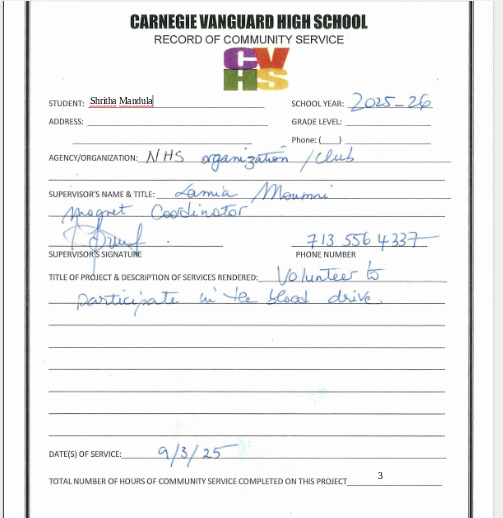 CARNEGIE VANGUARD HIGH SCHOOL
RECORD OF COMMUNITY SERVICE
CV
HS
STUDENT: Shritha Mandula SCHOOL YEAR: 2025-26
ADDRESS: GRADE LEVEL:
Phone: ( )
AGENCY/ORGANIZATION: NHS organization /Club
SUPERVISOR'S NAME & TITLE: Lamia Moumni
Magnet Coordinator
713 556 4337
SUPERVISOR'S SIGNATURE PHONE NUMBER
TITLE OF PROJECT & DESCRIPTION OF SERVICES RENDERED: Volunteer to
participate in the blood drive.
DATE(S) OF SERVICE: 9/3/25
TOTAL NUMBER OF HOURS OF COMMUNITY SERVICE COMPLETED ON THIS PROJECT 3